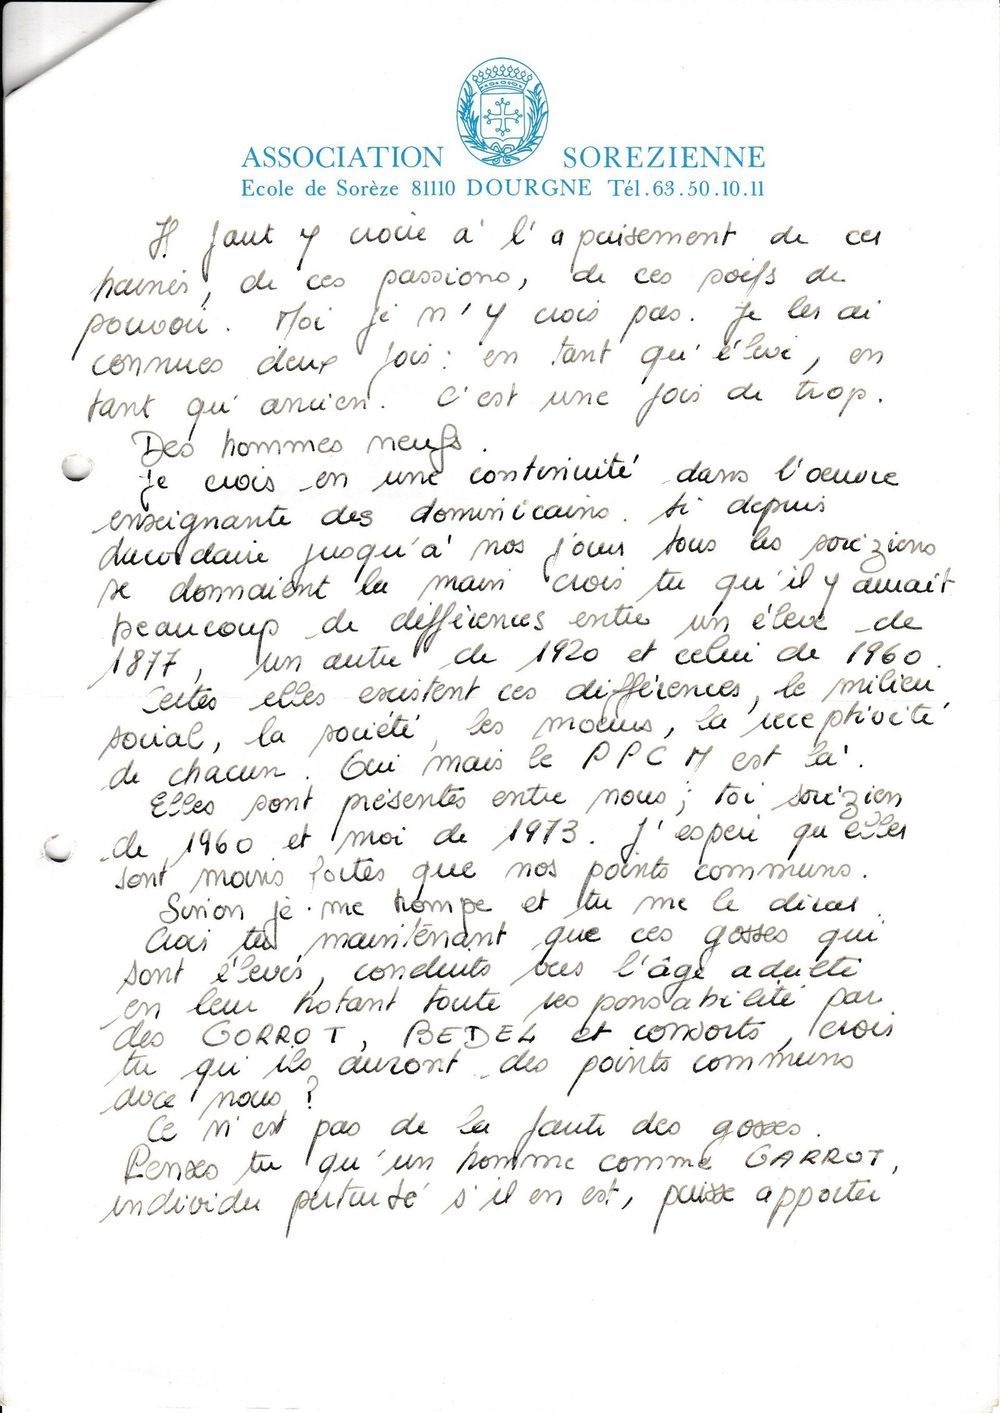 ASSOCIATION SOREZIENNE
Ecole de Sorèze 81110 DOURGNE Tél.63.50.10.11
Il faut y croire à l'apaisement de ces
haines, de ces passions, de ces soifs de
pouvoir. Moi je n'y crois pas. Je les ai
connues deux fois : en tant qu'élève, en
tant qu'ancien. C'est une fois de trop.
Des hommes neufs.
Je crois en une continuité dans l'oeuvre
enseignante des dominicains. Si depuis
Lacordaire jusqu'à nos jours tous les soréziens
se donnaient la main crois tu qu'il y aurait
beaucoup de différences entre un élève de
1877, un autre de 1920 et celui de 1960.
Certes elles existent ces différences, le milieu
social, la société, les moeurs, la réceptivité
de chacun. Oui mais le PPCM est là.
Elles sont présentes entre nous ; toi sorézien
de 1960 et moi de 1973. J'espère qu'elles
sont moins fortes que nos points communs.
Sinon je me trompe et tu me le diras.
Crois tu maintenant que ces gosses qui
sont élevés, conduits vers l'âge adulte
en leur hotant toute responsabilité par
des GORROT, BEDEL et consorts, crois
tu qu'ils auront des points communs
avec nous ?
Ce n'est pas de la faute des gosses.
Penses tu qu'un homme comme GARROT,
individu perturbé s'il en est, puisse apporter